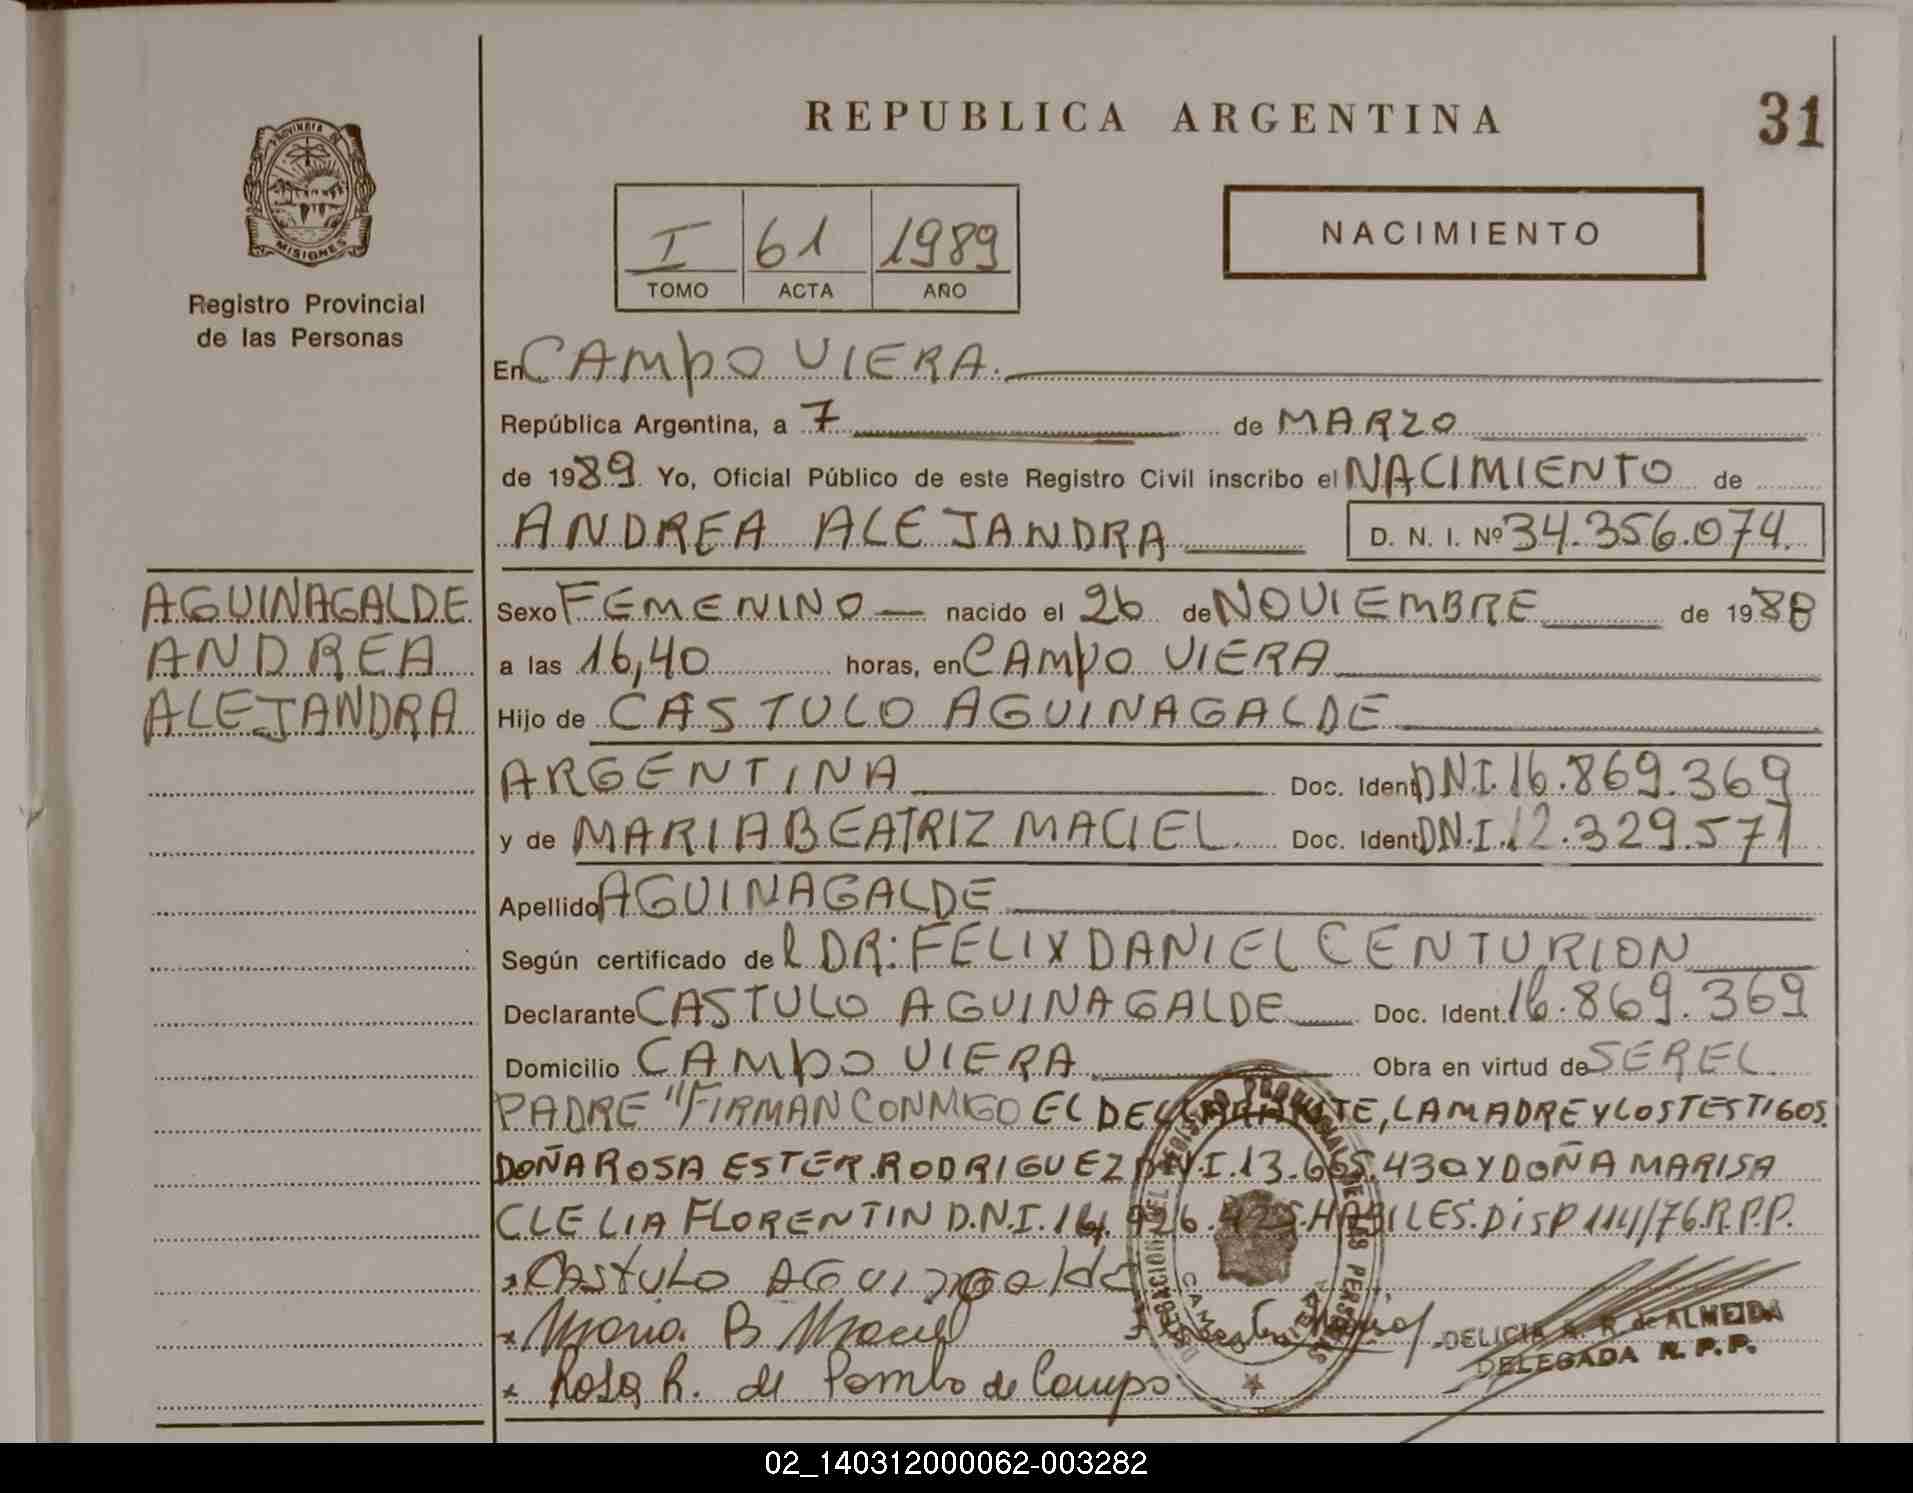 REPUBLICA ARGENTINA
31
PROVINCIA DE
MISIONES
Registro Provincial
de las Personas
I 61 1989
TOMO ACTA AÑO
NACIMIENTO
En CAMPO VIERA.
República Argentina, a 7 de MARZO
de 1989. Yo, Oficial Público de este Registro Civil inscribo el NACIMIENTO de
ANDREA ALEJANDRA D. N. I. Nº 34.356.074.
AGUINAGALDE
ANDREA
ALEJANDRA
Sexo FEMENINO — nacido el 26 de NOVIEMBRE de 1988
a las 16,40 horas, en CAMPO VIERA
Hijo de CASTULO AGUINAGALDE
ARGENTINA Doc. Ident. D.N.I. 16.869.369
y de MARIA BEATRIZ MACIEL Doc. Ident. D.N.I. 12.329.571
Apellido AGUINAGALDE
Según certificado de l DR: FELIX DANIEL CENTURION
Declarante CASTULO AGUINAGALDE Doc. Ident. 16.869.369
Domicilio CAMPO VIERA Obra en virtud de SER EL
PADRE "FIRMAN CONMIGO EL DECLARANTE, LA MADRE Y LOS TESTIGOS.
DOÑA ROSA ESTER RODRIGUEZ D.N.I. 13.665.430 Y DOÑA MARISA
CLELIA FLORENTIN D.N.I. 14.926.425. HABILES. DISP 114/76.R.P.P.
CASTULO AGUINAGALDE
Maria B Maciel
DELICIA R. de ALMEIDA
DELEGADA R. P. P.
Rosa R. de Pombo de Campo
DELEGACION DEL REGISTRO PROVINCIAL DE LAS PERSONAS
CAMPO VIERA
02_140312000062-003282